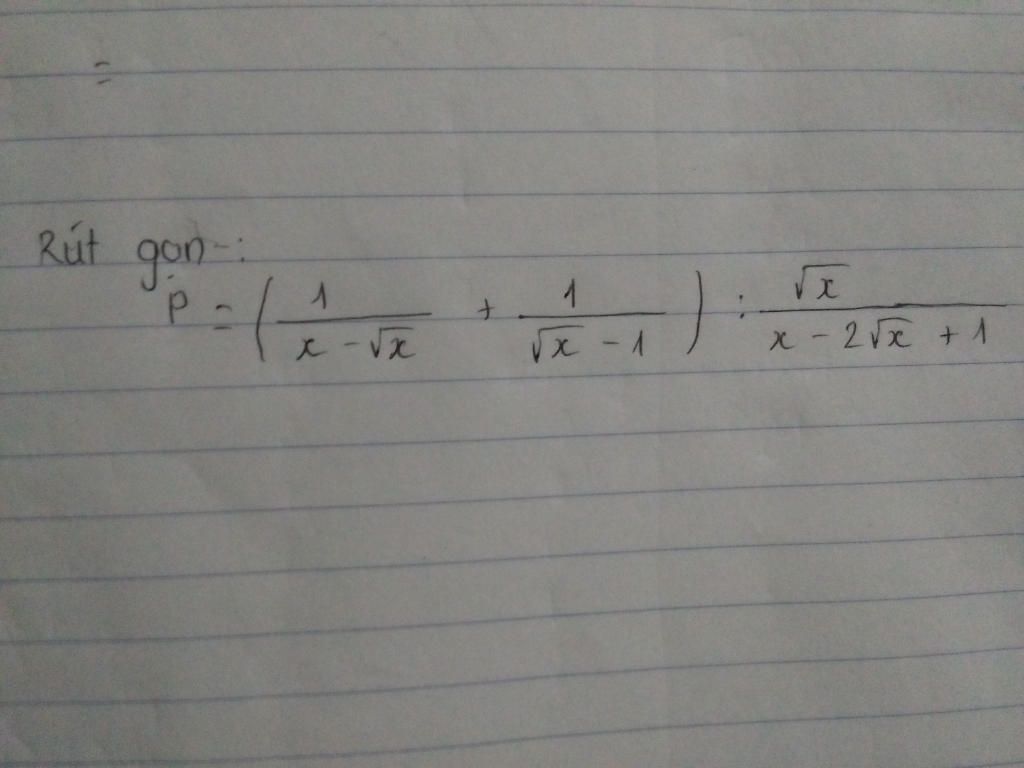 =
Rút gọn :
P = ( 1 / (x - √x) + 1 / (√x - 1) ) : √x / (x - 2√x + 1)